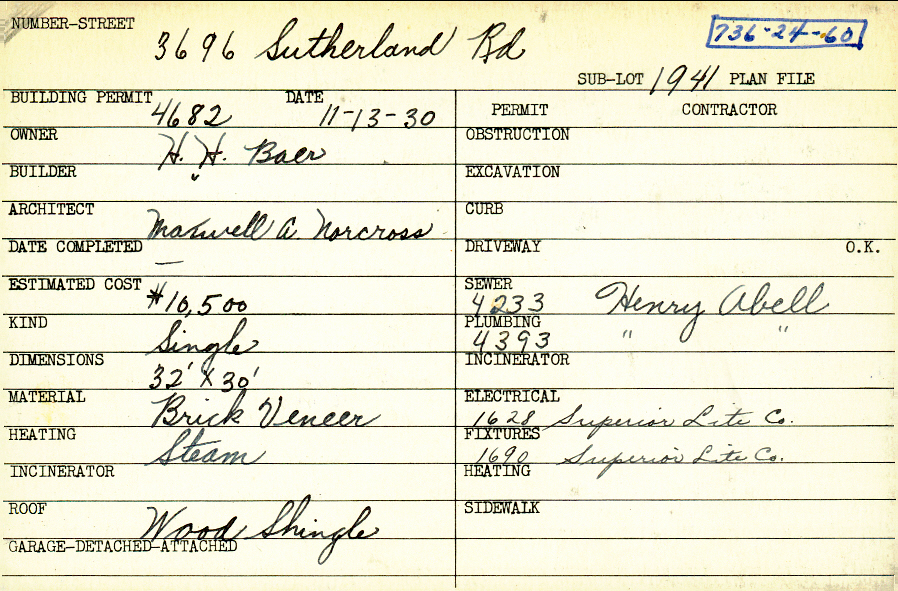 NUMBER-STREET
3696 Sutherland Rd
736-24-60
SUB-LOT 1941 PLAN FILE
BUILDING PERMIT 4682 DATE 11-13-30
OWNER H. H. Baer
BUILDER "
ARCHITECT Maxwell A. Norcross
DATE COMPLETED —
ESTIMATED COST $10,500
KIND Single
DIMENSIONS 32' X 30'
MATERIAL Brick Veneer
HEATING Steam
INCINERATOR
ROOF Wood Shingle
GARAGE-DETACHED-ATTACHED
PERMIT CONTRACTOR
OBSTRUCTION
EXCAVATION
CURB
DRIVEWAY O.K.
SEWER
4233 Henry Abell
PLUMBING
4393 " "
INCINERATOR
ELECTRICAL
1628 Superior Lite Co.
FIXTURES
1690 Superior Lite Co.
HEATING
SIDEWALK